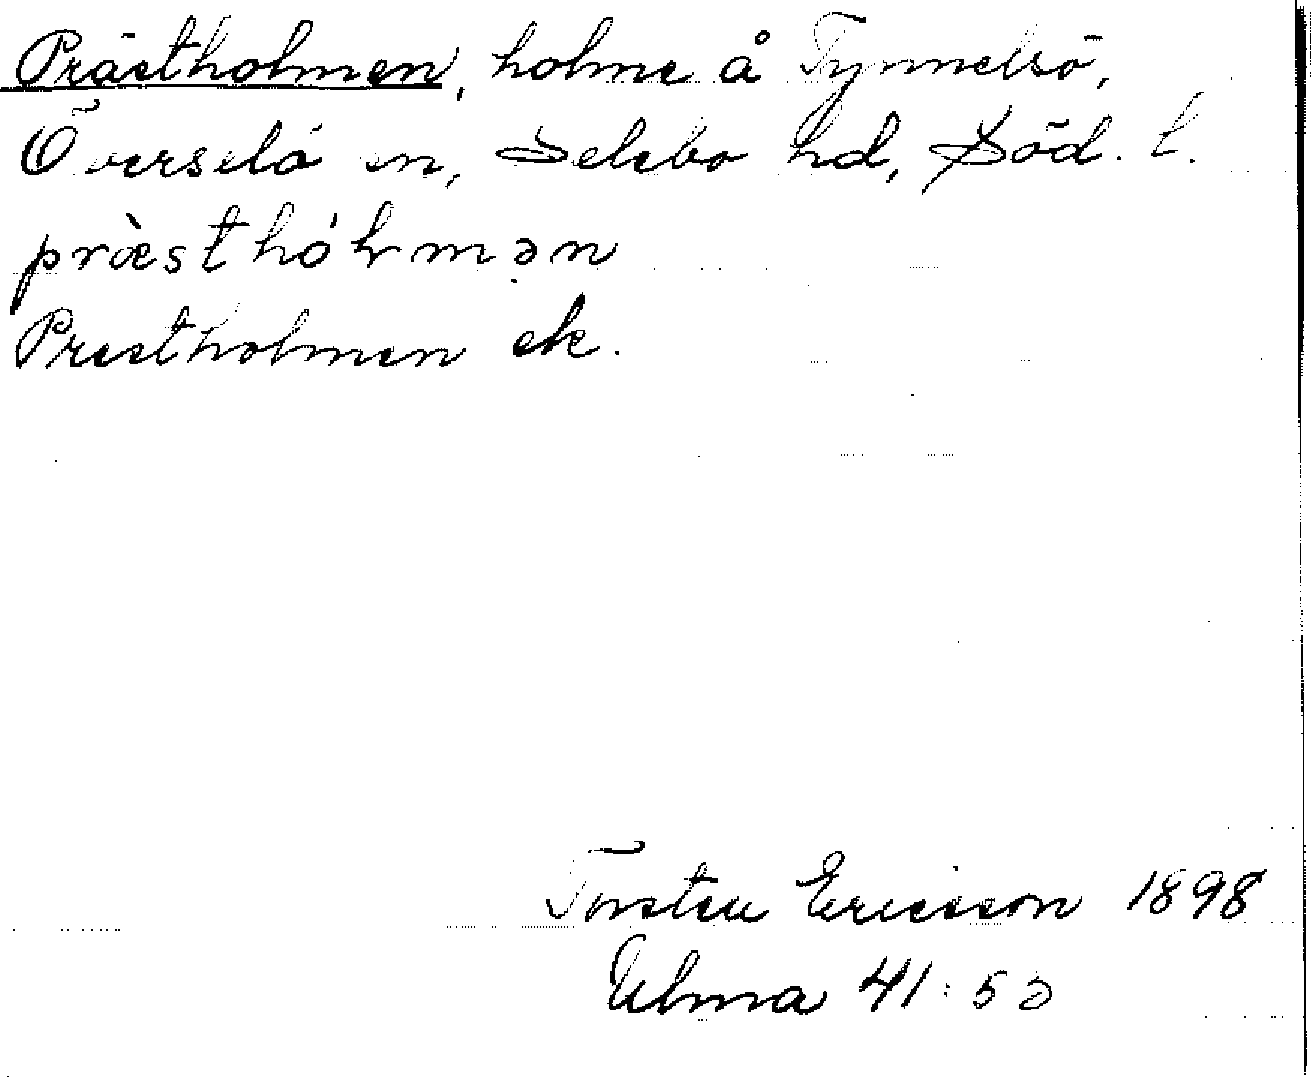 Prästholmen, holme å Tynnelsö,
Överselö sn, Selebo hd, Söd. l.
præsthólmən
Prestholmen ek.
Torsten Ericsson 1898
Ulma 41:53